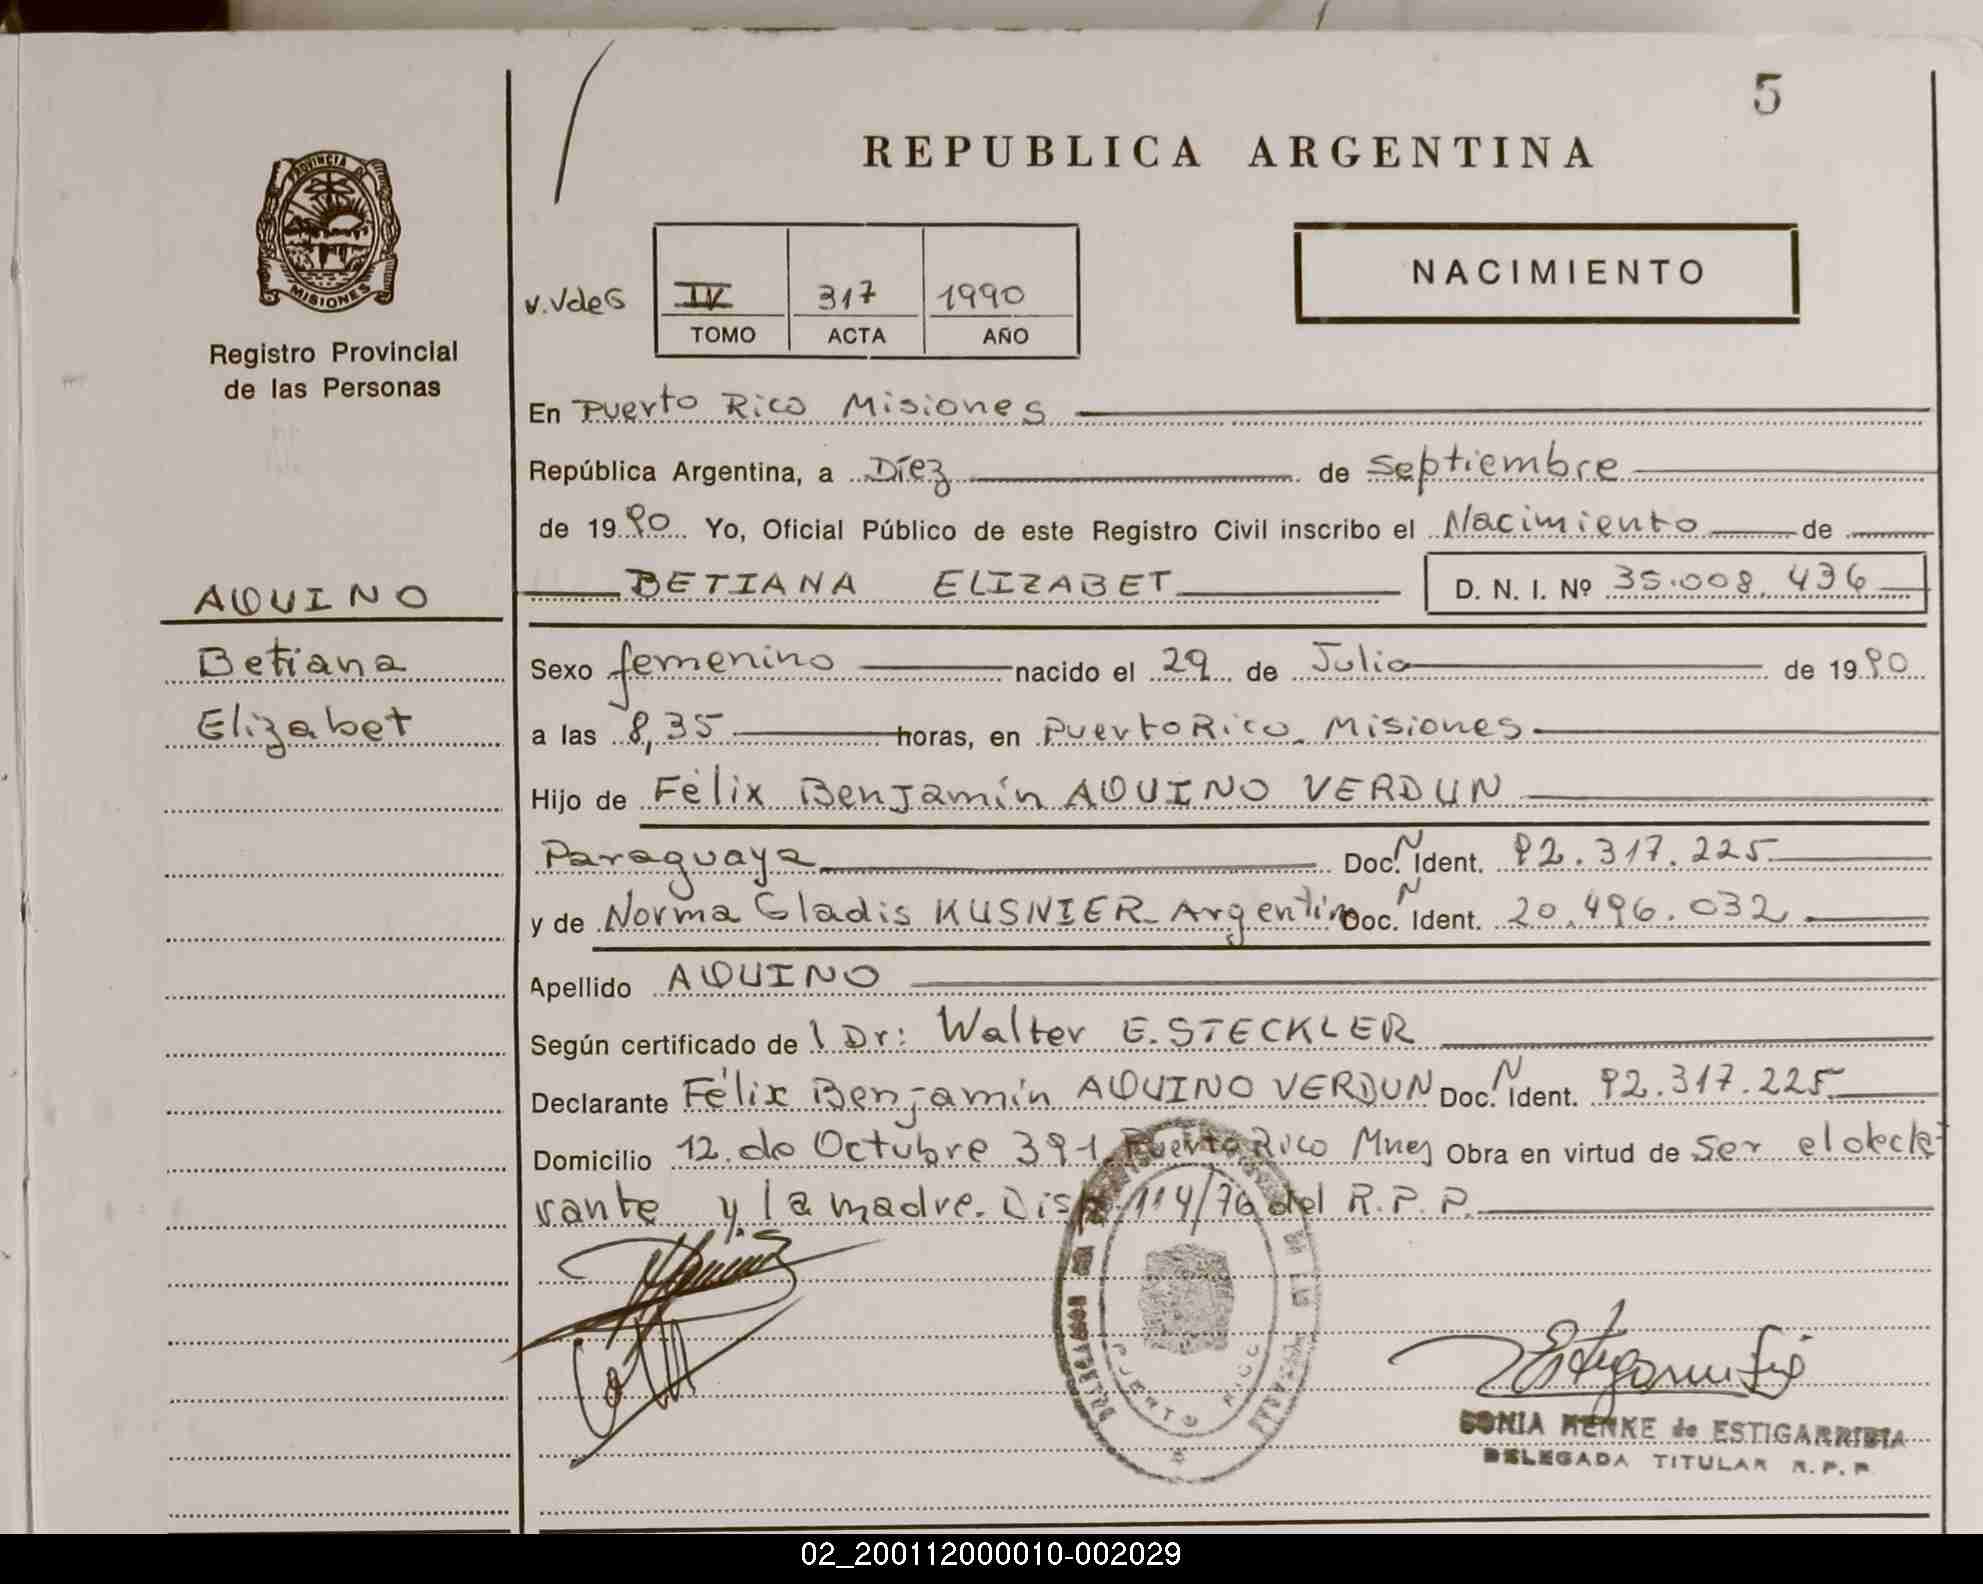 5
REPUBLICA ARGENTINA
PROVINCIA DE
MISIONES
Registro Provincial
de las Personas
NACIMIENTO
IV 317 1990
TOMO ACTA AÑO
En Puerto Rico Misiones
República Argentina, a Diez de Septiembre
de 1990 Yo, Oficial Público de este Registro Civil inscribo el Nacimiento de
BETIANA ELIZABET D. N. I. Nº 35.008.436
AQUINO
Betiana
Elizabet
Sexo femenino nacido el 29 de Julio de 1990
a las 8,35 horas, en Puerto Rico Misiones
Hijo de Félix Benjamín AQUINO VERDUN
Paraguaya Doc. N Ident. 92.317.225
y de Norma Gladis KUSNIER - Argentina Doc. N Ident. 20.496.032
Apellido AQUINO
Según certificado del Dr: Walter E. STECKLER
Declarante Félix Benjamín AQUINO VERDUN Doc. N Ident. 92.317.225
Domicilio 12 de Octubre 391 Puerto Rico Mnes Obra en virtud de Ser el decla
rante y la madre. Disp. 114/76 del R. P. P.
DELEGACION
PUERTO RICO
SONIA HENKE de ESTIGARRIBIA
DELEGADA TITULAR R. P. P.
02_200112000010-002029